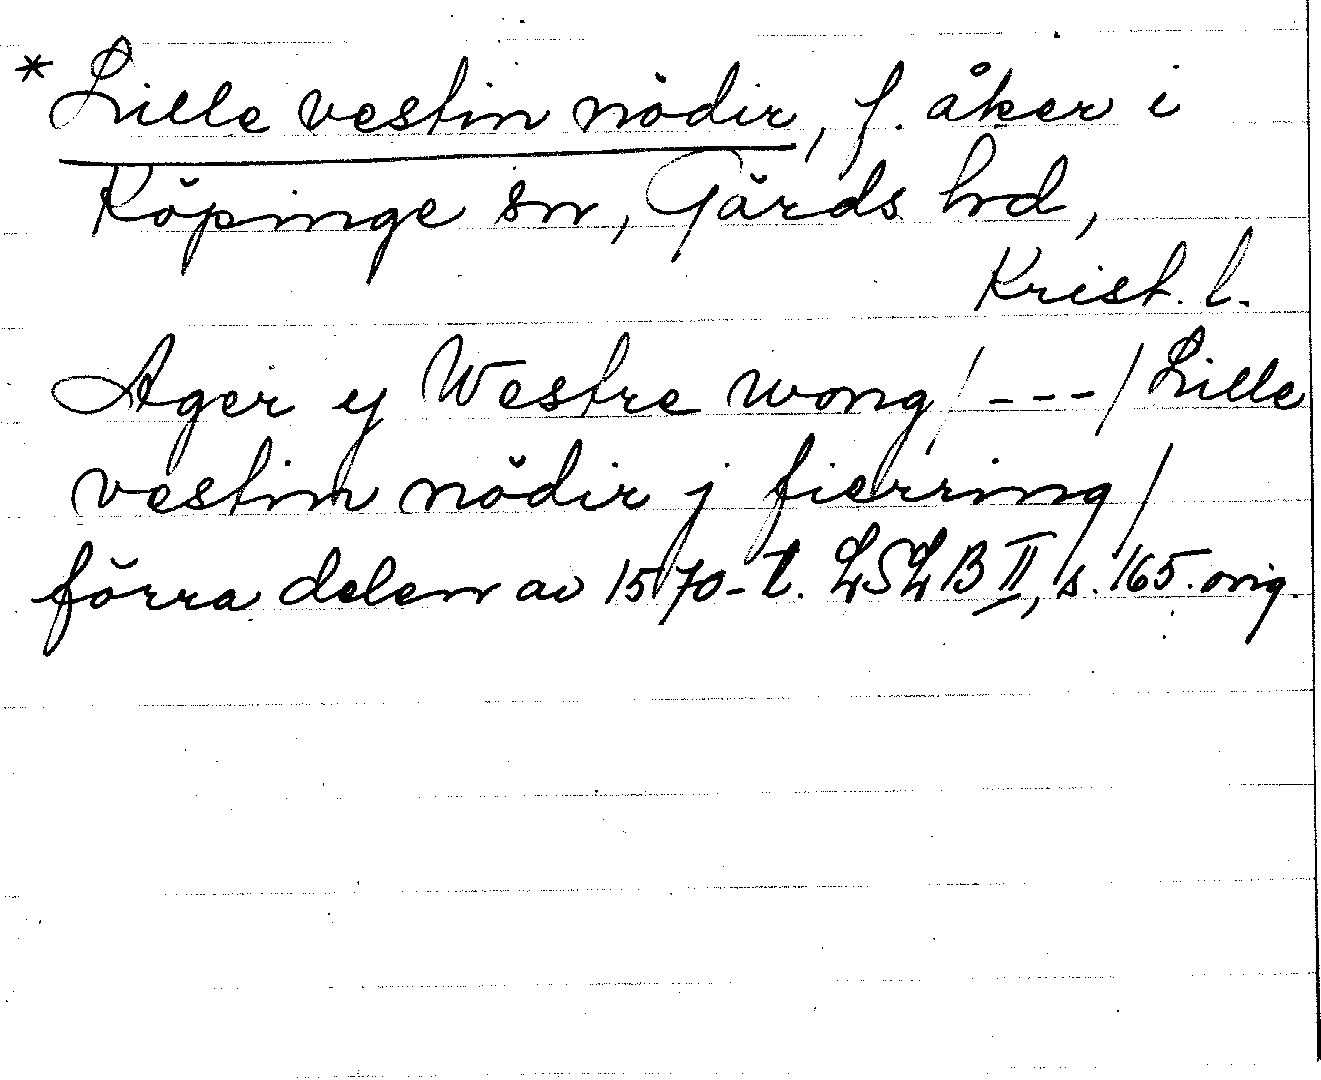 * Lille vestin nödir, f. åker i
Köpinge sn, Gärds hd,
Krist. l.
Ager y Westre wong / --- / Lille
vestin nödir j fierring /
förra delen av 1570-t. LSLB II, s. 165. orig.